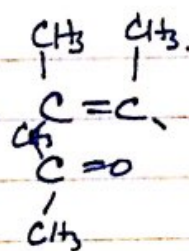 CH3 CH3.
C=C
CH3
C=O
CH3